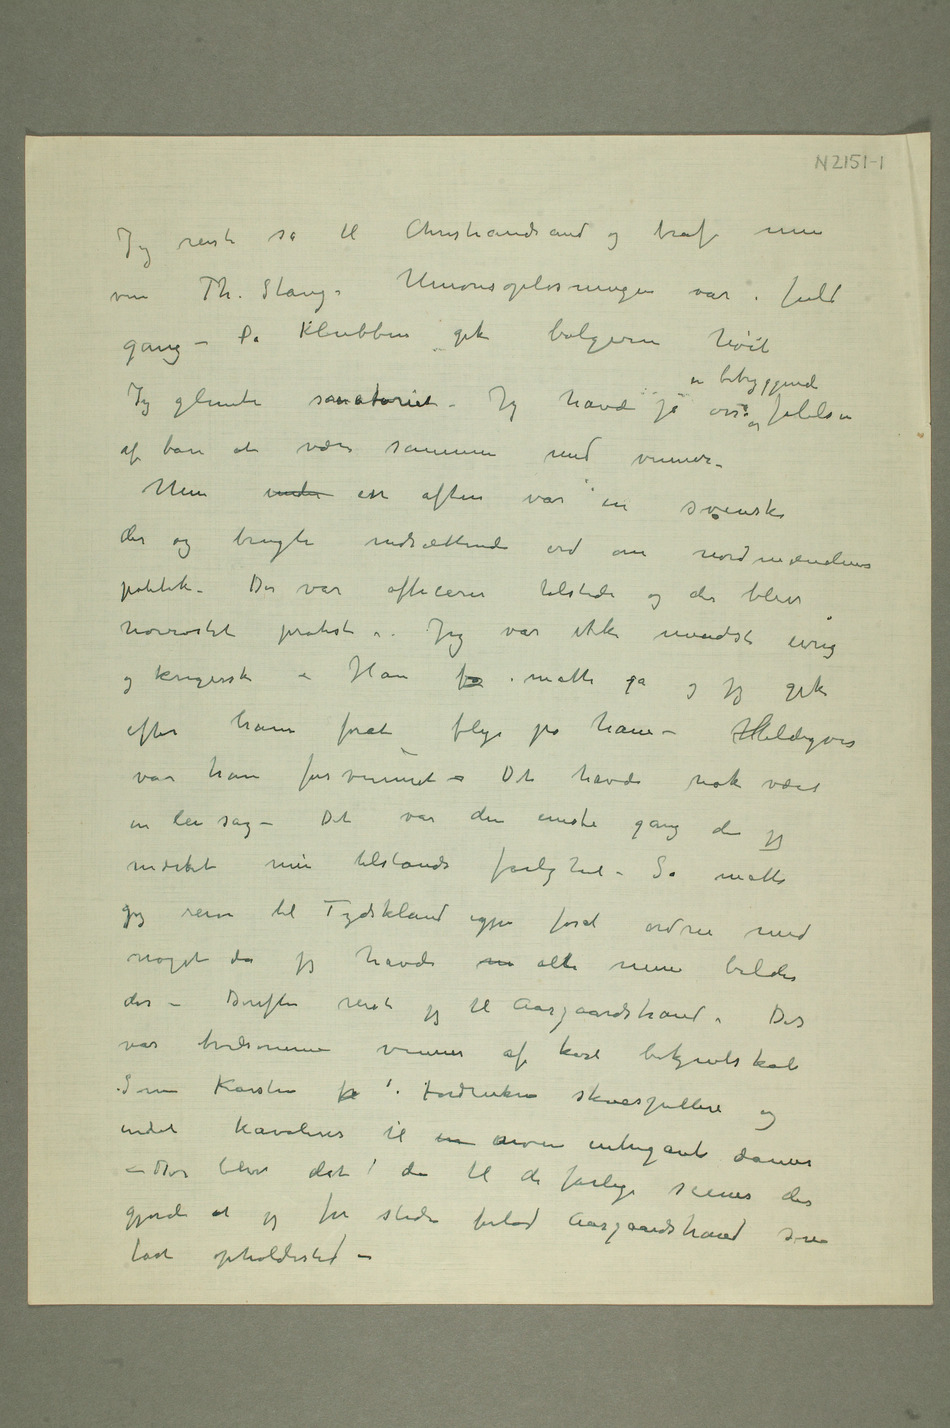 N 2151-1
Jeg reiste så til Christiandsand og traf min
ven Th. Stang. Unionsopløsningen var i fuld
gang – På Klubben gik bølgerne høit
en betryggende
Jeg glemte sanatoriet – Jeg havde jo også følelsen
af bare at være sammen med venner.
Men under en aften var en svenske
der og brugte nedsættende ord om nordmændenes
politik – Der var officerer tilstede og der blev
høirøstet protest. Jeg var ikke mindst ivrig
og krigersk – Han måtte gå og jeg gik
efter ham forat flyge på ham – Heldigvis
var han forsvunnet – Det havde nok været
en lei sag – Det var den eneste gang da jeg
mærket min tilstands farlighed – Så måtte
jeg reise til Tydskland igjen forat ordne med
noget da jeg havde alle mine billeder
der – Derefter reiste jeg til Aasgaardstrand. Det
var tvilsomme venner af kort bekjentskab
Som Karsten fordrukne skuespillere og
endel kavalerer til noen intrigante damer
– Der blev det da til de farlige scener der
gjorde at jeg for stedse forlod Aasgaardstrand som
fast opholdssted –